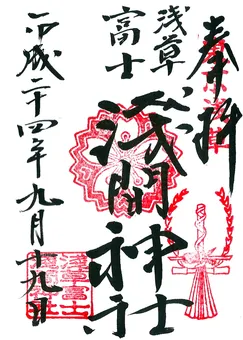 奉拝
浅草
富士
浅間神社
平成二十四年九月十九日
浅草富士